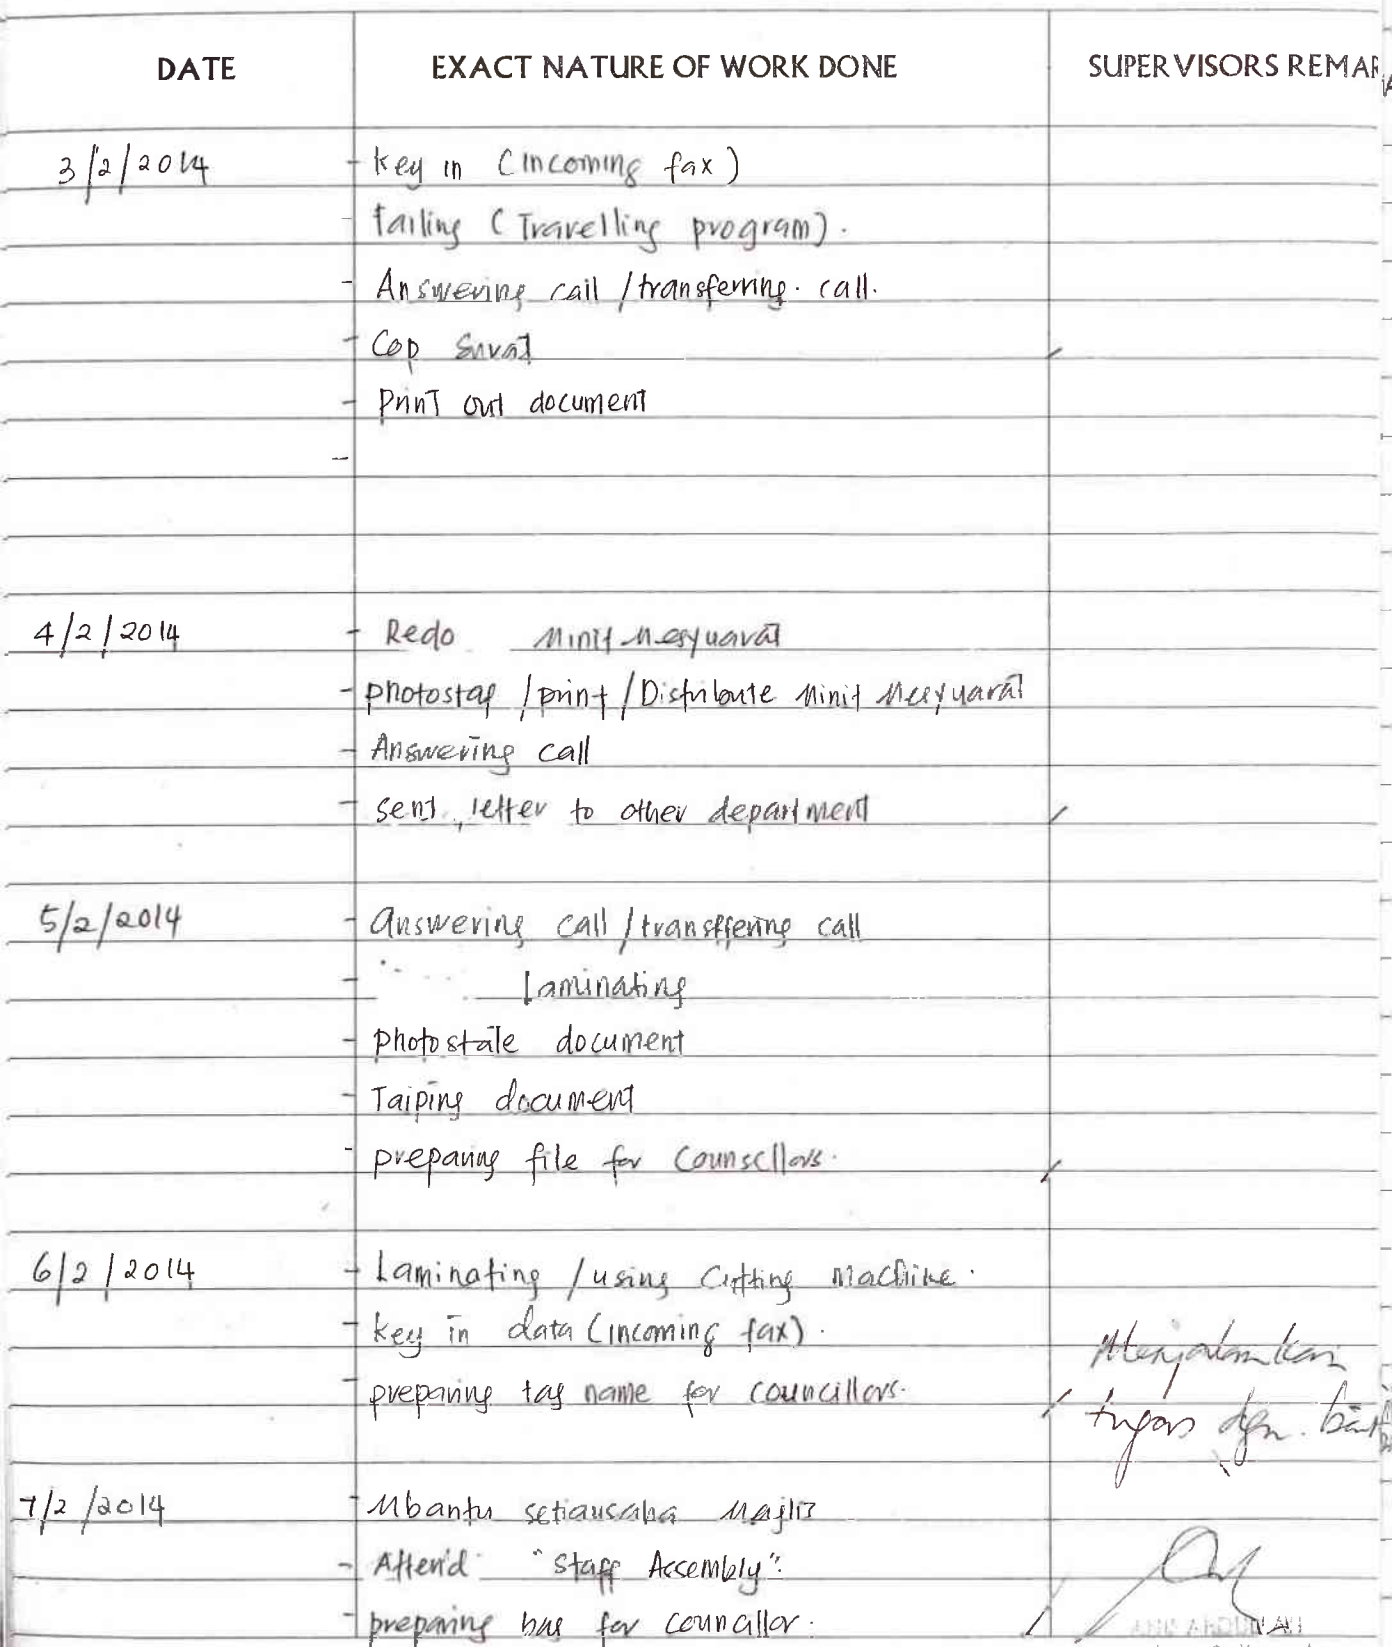 DATE EXACT NATURE OF WORK DONE SUPERVISORS REMAR
3/2/2014 - key in (incoming fax)
- failing (Travelling program).
- Answering call / transferring. call.
- Cop Surat
- Print out document
-
4/2/2014 - Redo Minit Mesyuarat
- photostat / print / Distribute Minit Mesyuarat
- Answering call
- sent letter to other department
5/2/2014 - answering call / transffering call
- Laminating
- photostate document
- Taiping document
- preparing file for Counsellors.
6/2/2014 - Laminating / using Cutting Machine.
- key in data (incoming fax). Menjalankan
- preparing tag name for councillors. tugas dgn. baik
7/2/2014 - Mbantu setiausaha Majlis
- Attend "Staff Assembly".
- preparing bag for councillor.
ABDULLAH